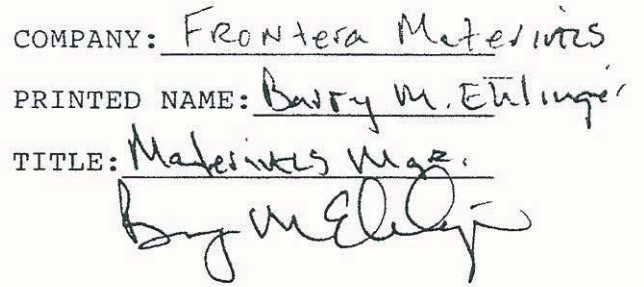 COMPANY: Frontera Materials
PRINTED NAME: Barry M. Ehlinger
TITLE: Materials Mgr.